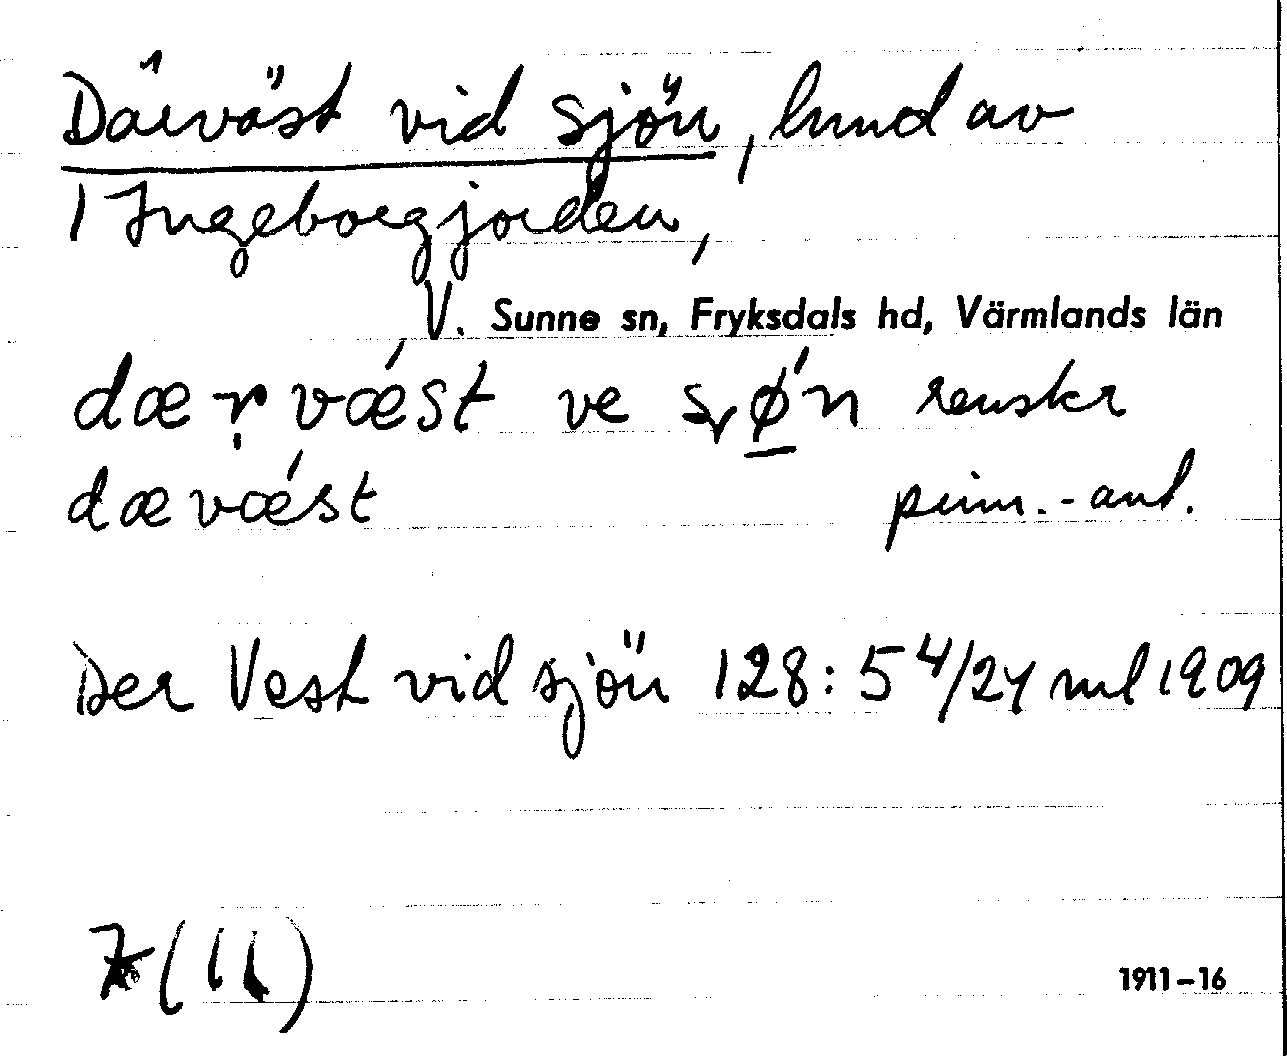 Därväst vid sjön, lund av
1 Ingeborgjorden,
V. Sunne sn, Fryksdals hd, Värmlands län
dærvǽst ve sǿn renskr
dævǽst prim.-ant.
Der Vest vid sjön 128:5 4/24 ml 1909
7 (11)
1911-16